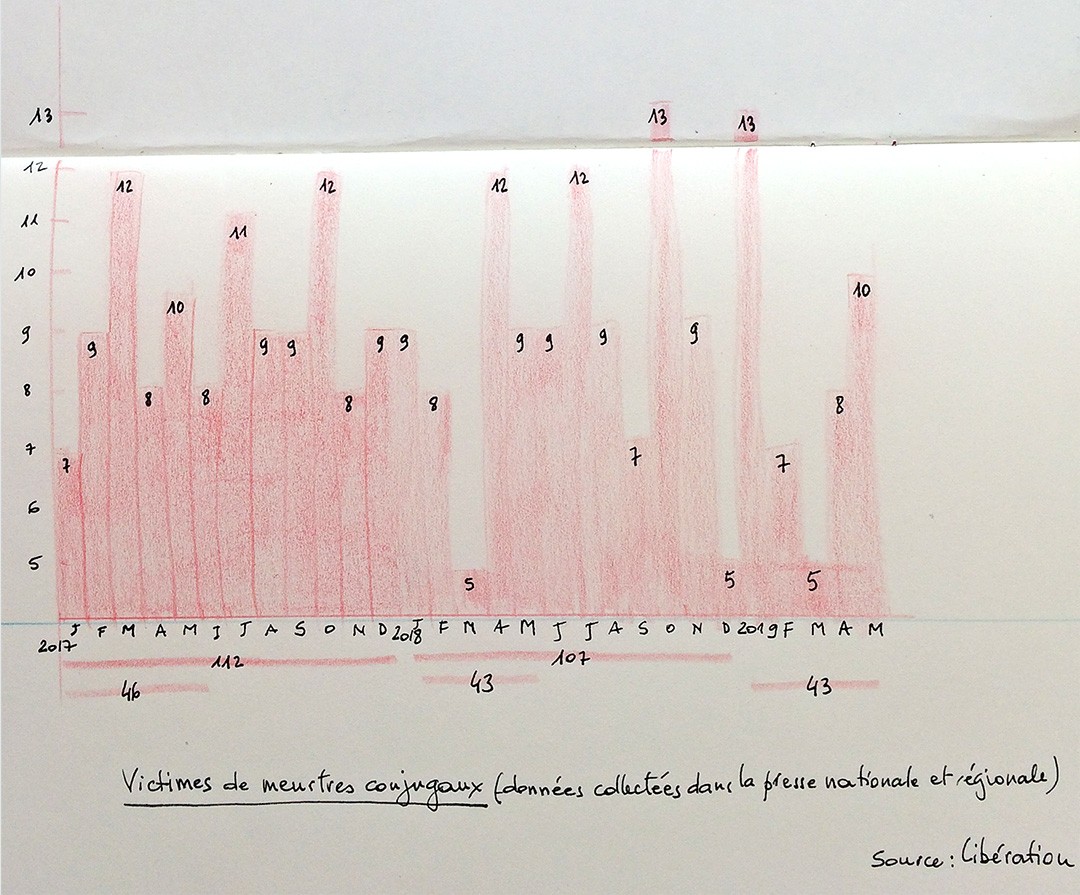 13
12
11
10
9
8
7
6
5
7 9 12 8 10 8 11 9 9 12 8 9 9 8 5 12 9 9 12 9 7 13 9 5 13 7 5 8 10
J F M A M J J A S O N D J F M A M J J A S O N D F M A M
2017 2018 2019
112 107
46 43 43
Victimes de meurtres conjugaux (données collectées dans la presse nationale et régionale)
Source : Libération